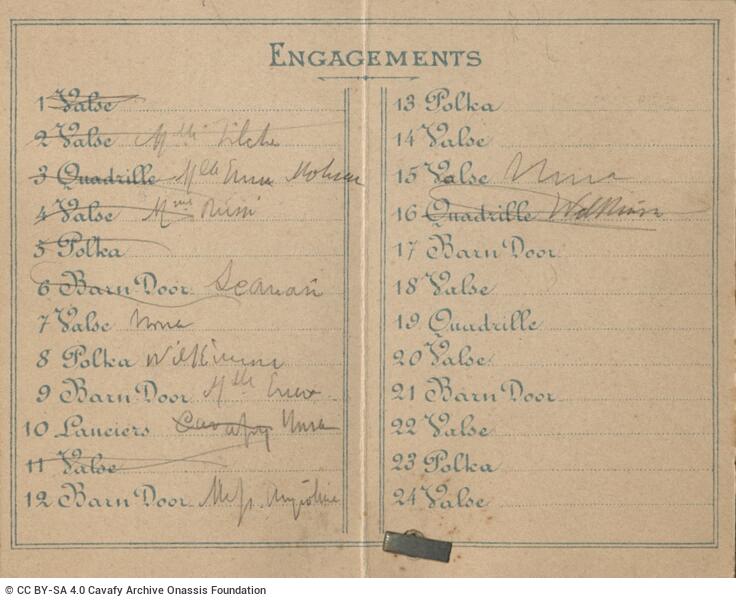 ENGAGEMENTS
1 Valse
2 Valse Mlle
3 Quadrille Mlle Emma
4 Valse Mme
5 Polka
6 Barn Door
7 Valse Nina
8 Polka Wilkinson
9 Barn Door Mlle
10 Lanciers Cavafy Nina
11 Valse
12 Barn Door
13 Polka
14 Valse
15 Valse Nina
16 Quadrille Wilkinson
17 Barn Door
18 Valse
19 Quadrille
20 Valse
21 Barn Door
22 Valse
23 Polka
24 Valse
© CC BY-SA 4.0 Cavafy Archive Onassis Foundation